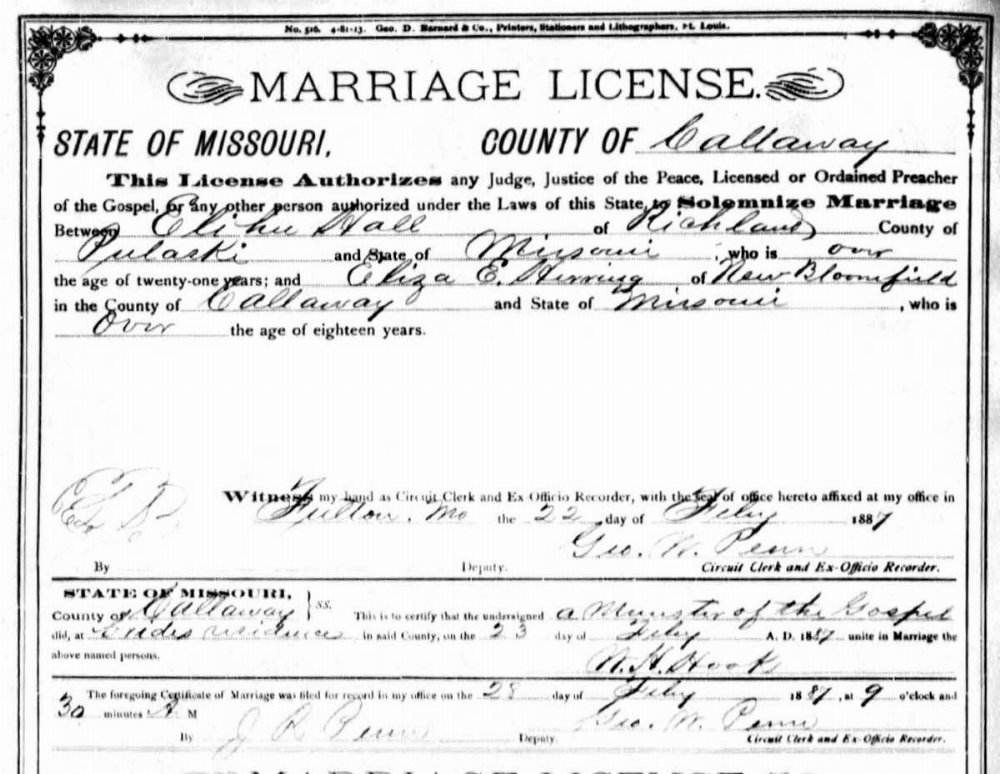 No. 516. 4-81-13. Geo. D. Barnard & Co., Printers, Stationers and Lithographers, St. Louis.
MARRIAGE LICENSE.
STATE OF MISSOURI, COUNTY OF Callaway
This License Authorizes any Judge, Justice of the Peace, Licensed or Ordained Preacher
of the Gospel, or any other person authorized under the Laws of this State, to Solemnize Marriage
Between Elihu Hall of Richland County of
Pulaski and State of Missouri, who is over
the age of twenty-one years; and Eliza E. Herring of New Bloomfield
in the County of Callaway and State of Missouri, who is
Over the age of eighteen years.
Witness my hand as Circuit Clerk and Ex Officio Recorder, with the seal of office hereto affixed at my office in
Fulton, Mo the 22 day of Feby 1887
Geo. W. Penn
By Deputy. Circuit Clerk and Ex-Officio Recorder.
STATE OF MISSOURI,
County of Callaway } SS. This is to certify that the undersigned a Minister of the Gospel
did, at residence in said County, on the 23 day of Feby A. D. 1887 unite in Marriage the
above named persons. W. H. Hook
The foregoing Certificate of Marriage was filed for record in my office on the 28 day of Feby 1887, at 9 o'clock and
30 minutes A M Geo. W. Penn
By J R Penn Deputy. Circuit Clerk and Ex-Officio Recorder.